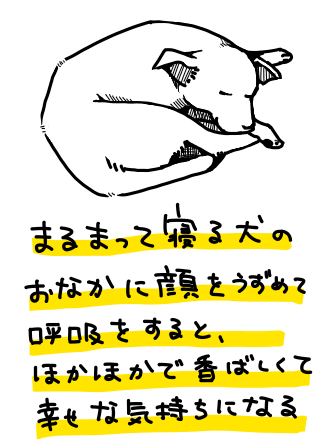 まるまって寝る犬の
おなかに顔をうずめて
呼吸をすると、
ほかほかで香ばしくて
幸せな気持ちになる